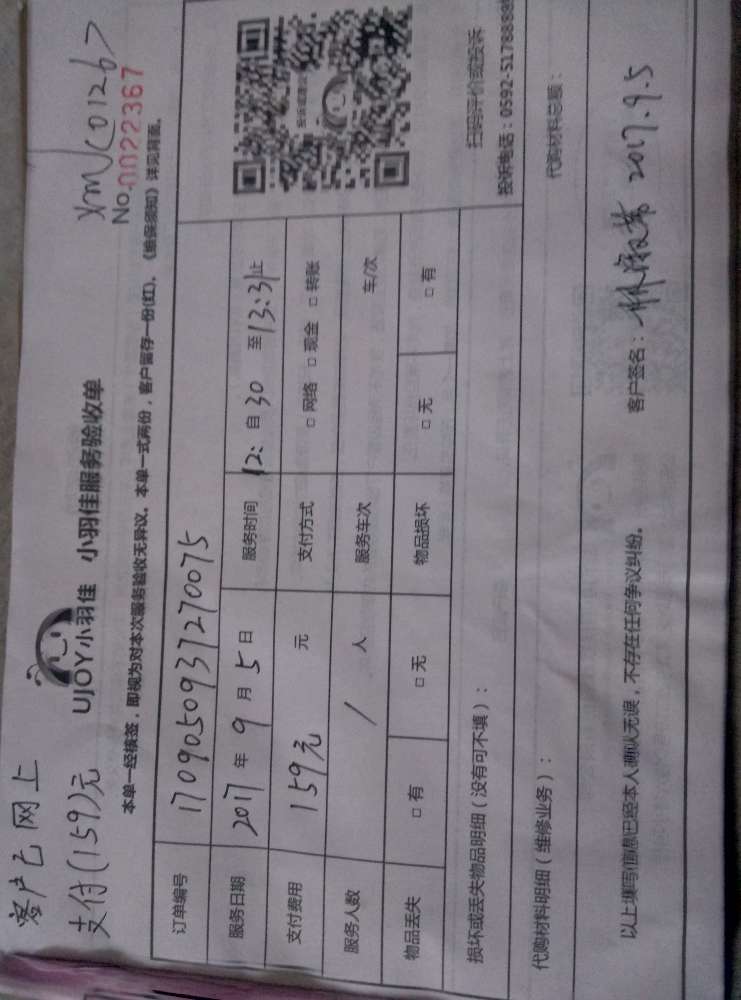 客户已网上
支付(159)元
UJOY小羽佳 小羽佳服务验收单
XMJC01267
No.0022367
本单一经核签，即视为对本次服务验收无异议。本单一式两份，客户留存一份(红)。《维保须知》详见背面。
订单编号 170905093727 0075
服务日期 2017年9月5日 服务时间 12:自30至13:31止
支付费用 159元 元 支付方式 □网络 □现金 □转账
服务人数 / 人 服务车次 车/次
物品丢失 □有 □无 物品损坏 □无 □有
损坏或丢失物品明细（没有可不填）：
扫码评价或投诉
投诉电话：0592-5178888
代购材料明细（维修业务）： 代购材料总额：
以上填写信息已经本人确认无误，不存在任何争议纠纷。 客户签名： 2017.9.5